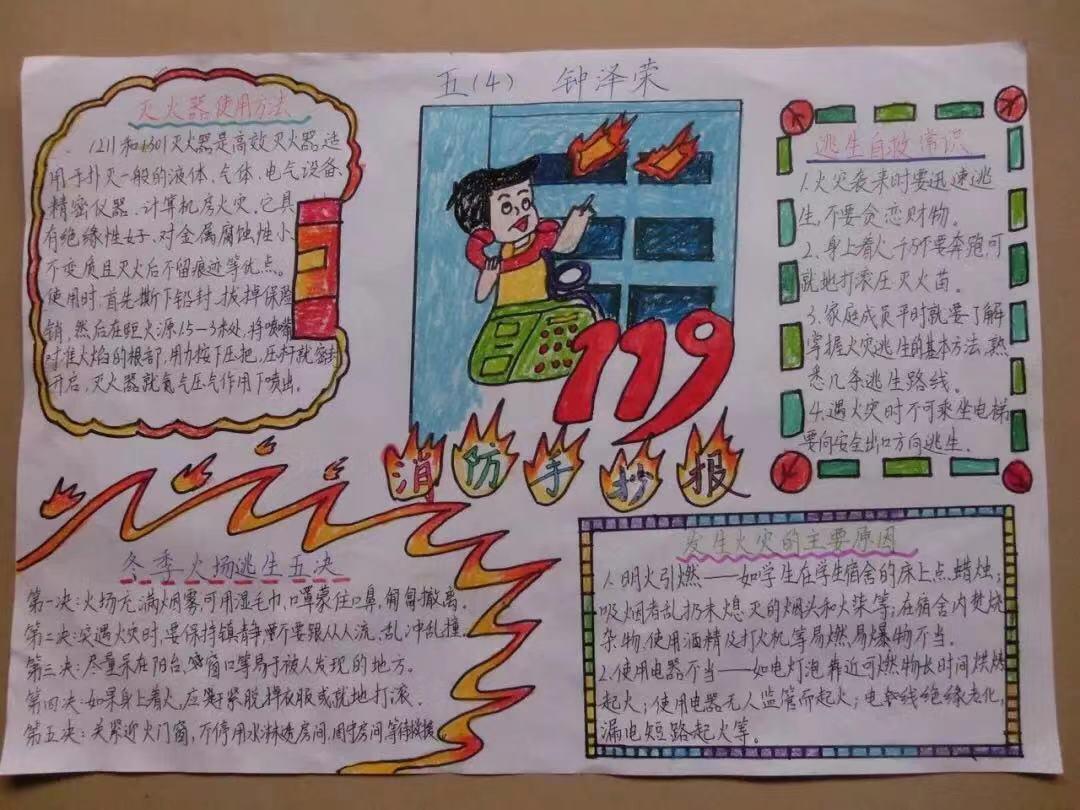 五(4) 钟泽荣
灭火器使用方法
1211和1301灭火器是高效灭火器,适
用于扑灭一般的液体、气体、电气设备、
精密仪器、计算机房火灾。它具
有绝缘性好、对金属腐蚀性小、
不变质且灭火后不留痕迹等优点。
使用时,首先撕下铅封,拔掉保险
销,然后在距火源1.5-3米处,将喷嘴
对准火焰的根部,用力按下压把,压杆就密封
开启,灭火器就氮气压气作用下喷出。
119
消防手抄报
逃生自救常识
1.火灾袭来时要迅速逃
生,不要贪恋财物。
2.身上着火千万不要奔跑可
就地打滚压灭火苗。
3.家庭成员平时就要了解
掌握火灾逃生的基本方法,熟
悉几条逃生路线。
4.遇火灾时不可乘坐电梯
要向安全出口方向逃生。
冬季火场逃生五决
第一决:火场充满烟雾,可用湿毛巾,口罩蒙住口鼻,匍匐撤离。
第二决:突遇火灾时,要保持镇静不要跟从人流,乱冲乱撞。
第三决:尽量呆在阳台,窗口等易于被人发现的地方。
第四决:如果身上着火,应赶紧脱掉衣服或就地打滚。
第五决:关紧近火门窗,不停用水淋透房间,固守房间等待救援。
发生火灾的主要原因
1.明火引燃——如学生在学生宿舍的床上点蜡烛;
吸烟者乱扔未熄灭的烟头和火柴等;在宿舍内焚烧
杂物,使用酒精及打火机等易燃,易爆物不当。
2.使用电器不当——如电灯泡靠近可燃物长时间烘烤
起火;使用电器无人监管而起火;电线绝缘老化,
漏电短路起火等。